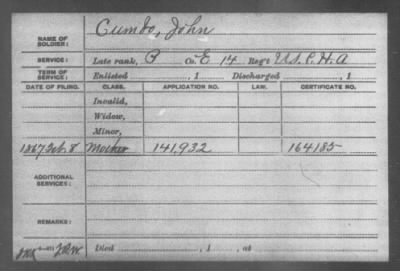 NAME OF SOLDIER: Cumbo, John
SERVICE: Late rank, P Co. E 14 Reg't U.S.C.H.A
TERM OF SERVICE: Enlisted , 1 Discharged , 1
DATE OF FILING. CLASS. APPLICATION NO. LAW. CERTIFICATE NO.
Invalid,
Widow,
Minor,
1867 Feb 8 Mother 141,932 164185
ADDITIONAL SERVICES:
REMARKS:
Died , 1 , at